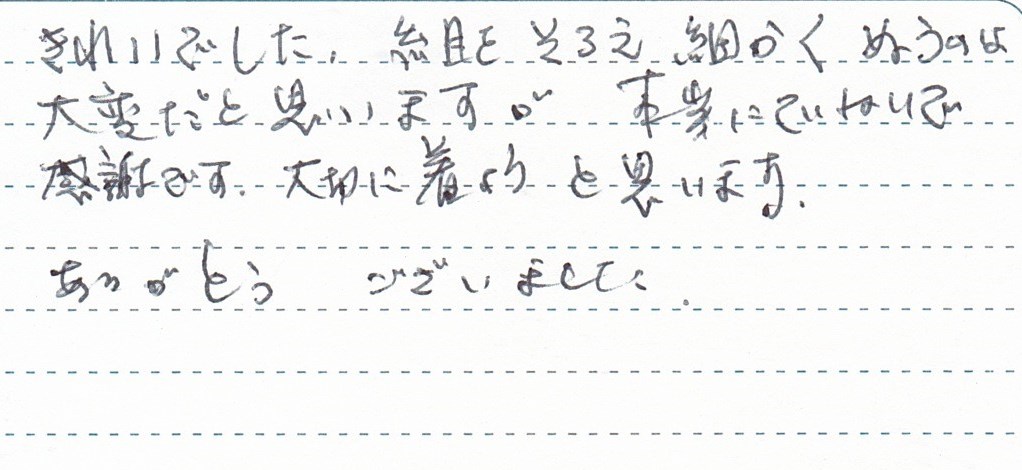 きれいでした。糸目をそろえ 細かく ぬうのは
大変だと思いますが 本当にていねいで
感謝です。大切に着ようと思います。
ありがとう ございました.